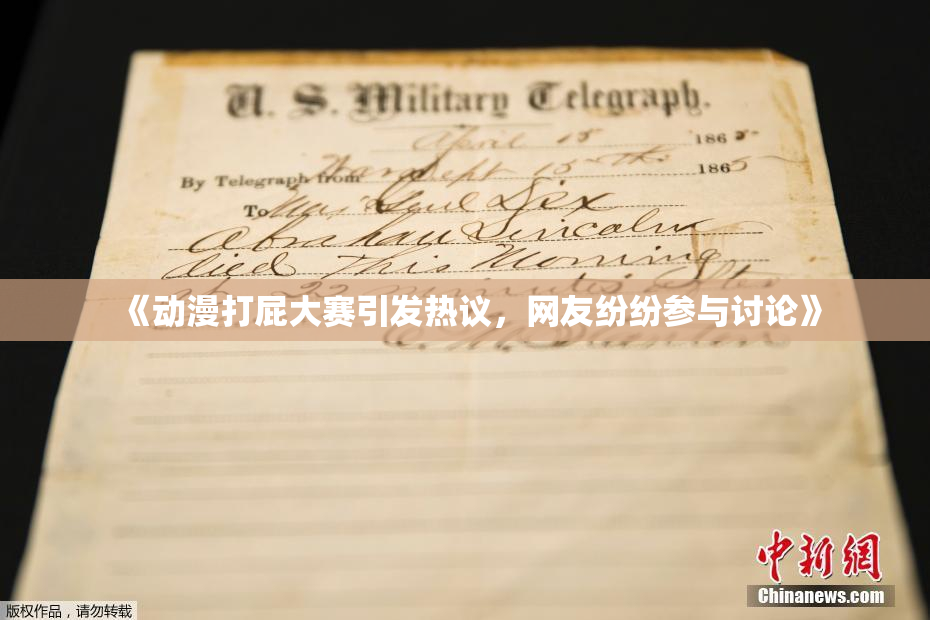 U. S. Military Telegraph.
April 15 1865
By Telegraph from War Dept 15th 1865
To Maj Genl Dix
Abraham Lincoln
died This Morning
at 22 minutes after
《动漫打屁大赛引发热议，网友纷纷参与讨论》
E. M. Stanton
中新網
Chinanews.com
版权作品，请勿转载